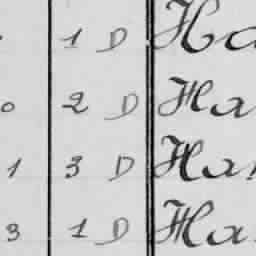 1 D Ha
0 2 D Ha
1 3 D Ha
3 1 D Ha